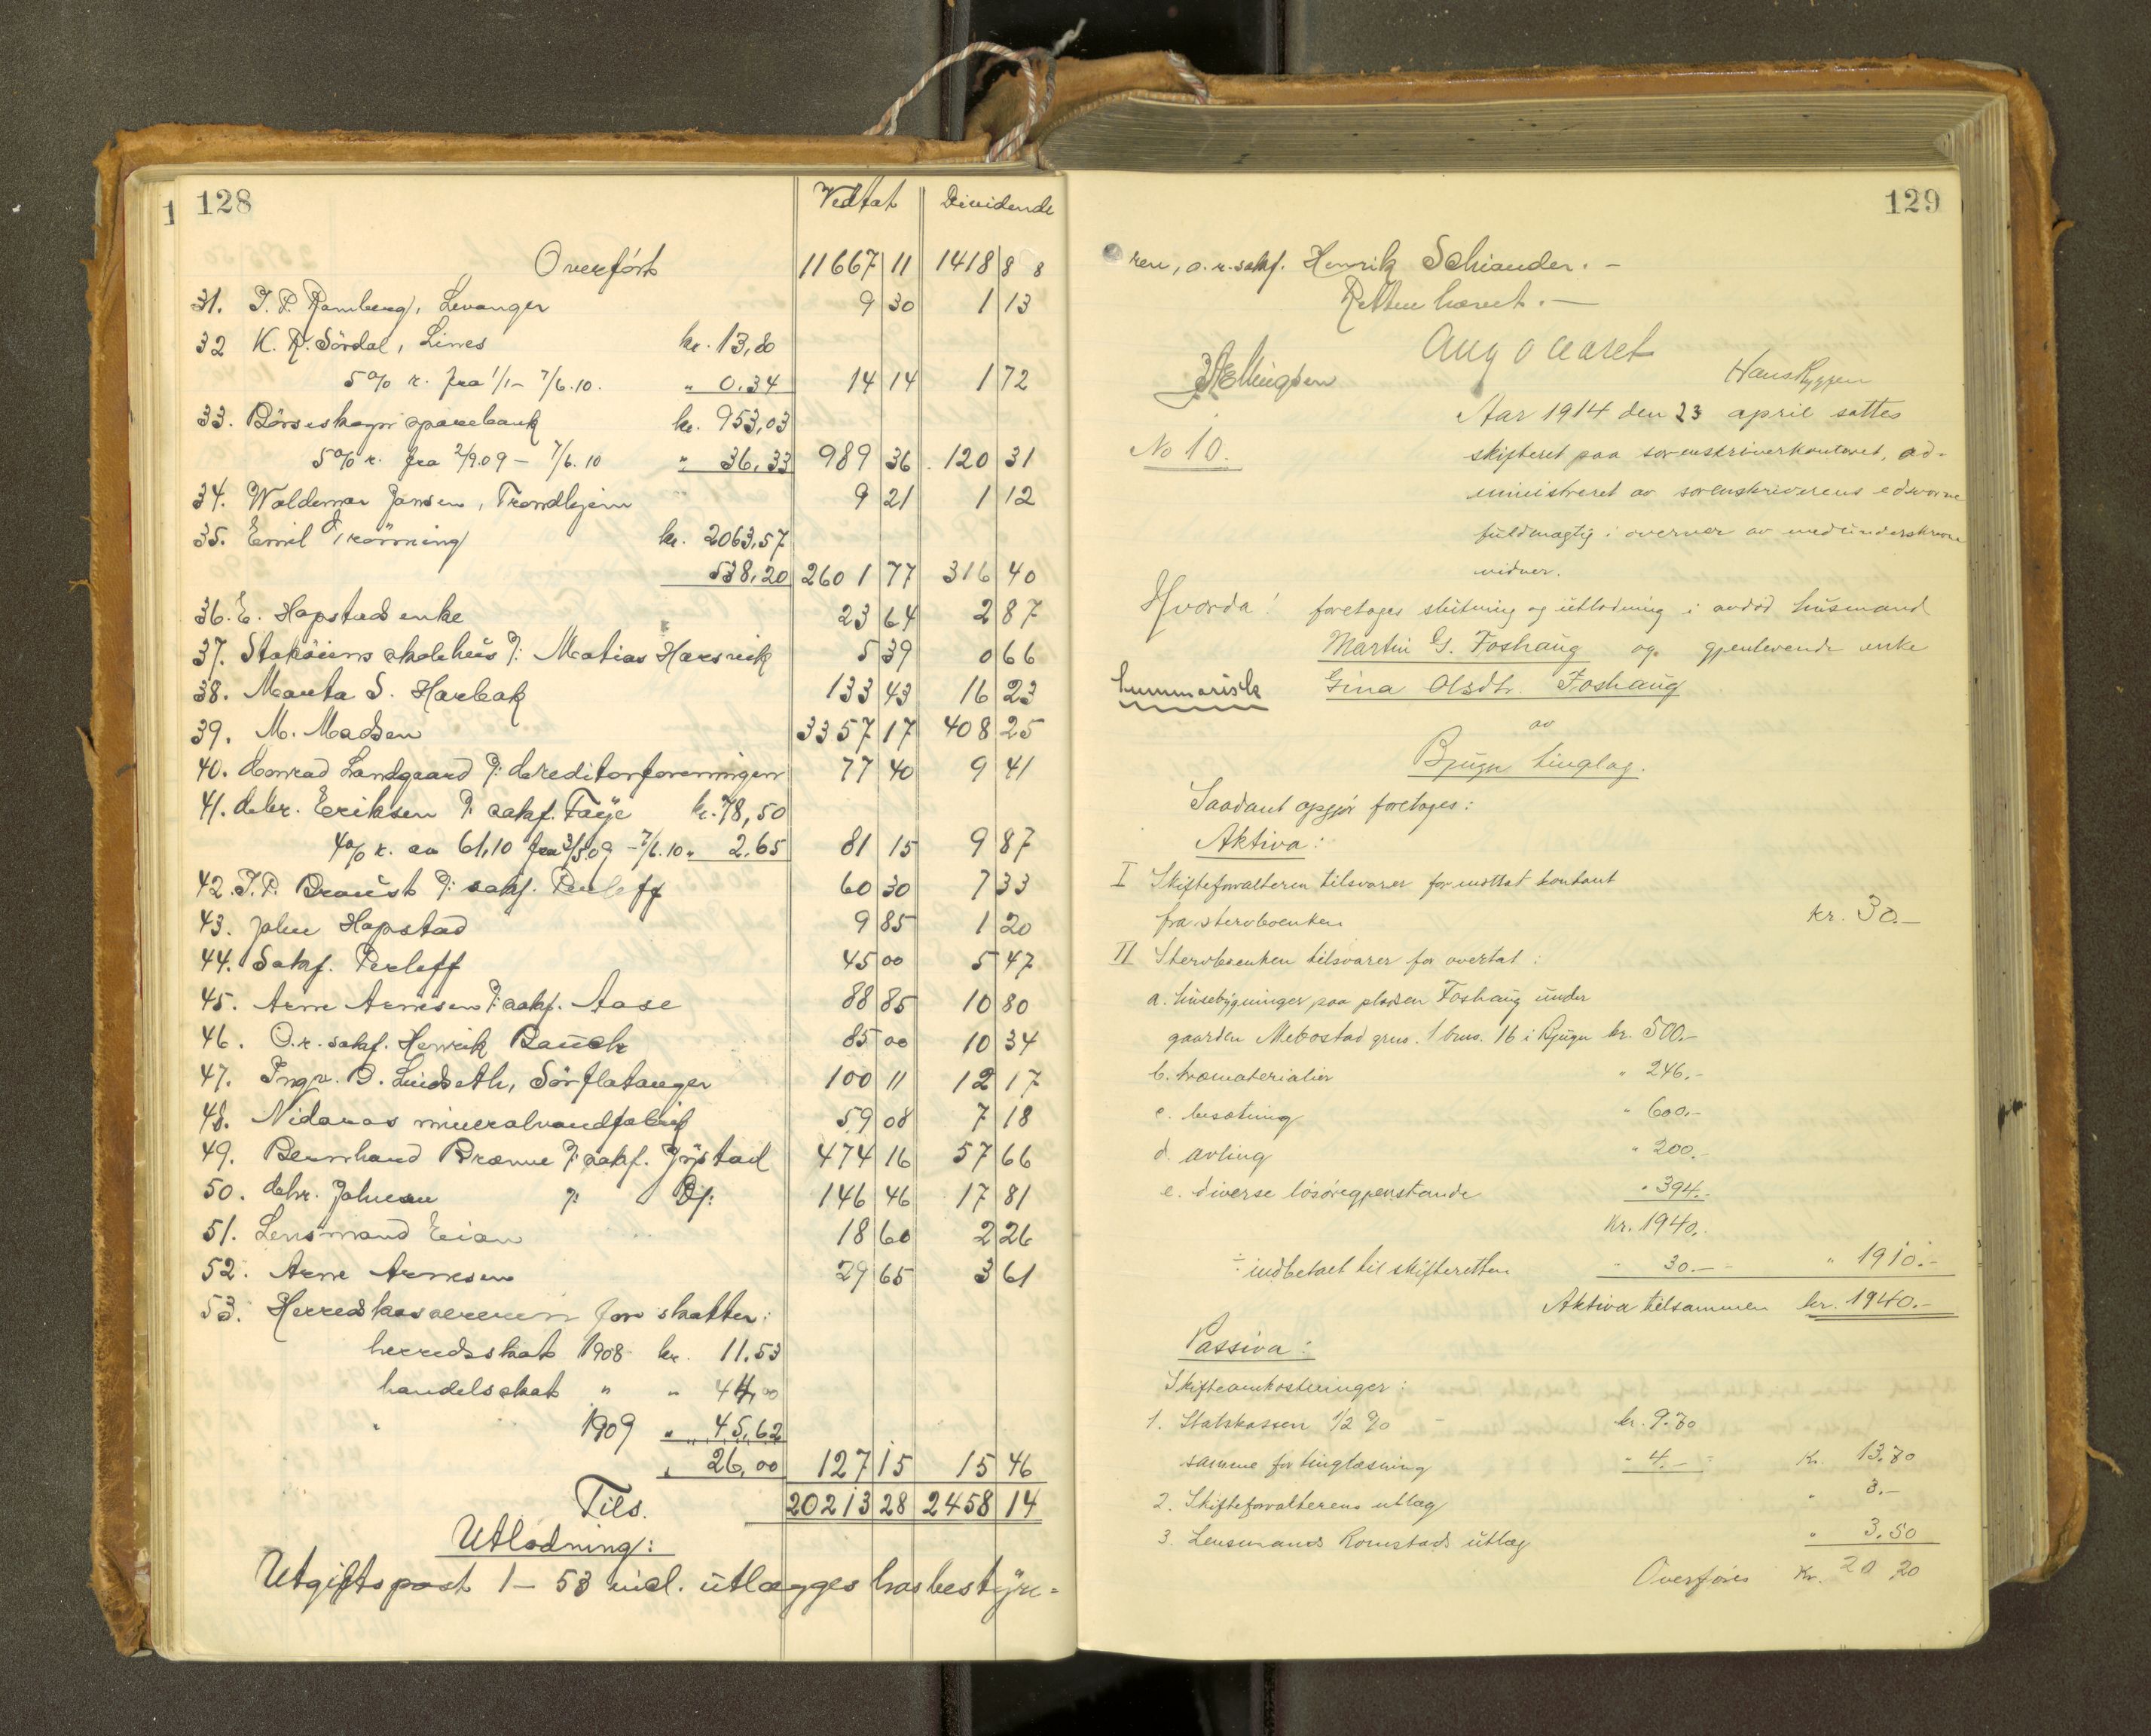 128
Vedtat Dividende
Overført 11667 11 1418 88
31. J. P. Ramberg, Levanger 9 30 1 13
32 K. R. Sördal, Lines kr. 13,80
5% r. fra 1/1 - 7/6.10. " 0.34 14 14 1 72
33. Börseskogn sparebank kr. 953,03
5% r. fra 2/9.09 - 7/6.10 " 36,33 989 36 120 31
34. Waldemar Jansen, Trondhjem 9 21 1 12
35. Emil kr. 2063,57
538,20 2601 77 316 40
36. E. Hopstads enke 23 64 2 87
37. Stoköiens skolehus ɔ: Matias Harsvik 5 39 0 66
38. Marta S. Harbak 133 43 16 23
39. M. Madsen 3357 17 408 25
40. Conrad Landgaard ɔ: Creditorforeningen 77 40 9 41
41. Chr. Eriksen ɔ: sakf. Faye kr. 78,50
4% r. av 61,10 fra 3/5.09 - 7/6.10 " 2.65 81 15 9 87
42. J. P. ɔ: sakf. Perleff 60 30 7 33
43. John Hopstad 9 85 1 20
44. Sakf. Perleff 45 00 5 47
45. Arne Arnesen ɔ: sakf. Aase 88 85 10 80
46. O.r. sakf. Henrik Bauck 85 00 10 34
47. Ingv. O. Lindseth, Sörflatanger 100 11 12 17
48. Nidaros mineralvandfabrik 59 08 7 18
49. Bernhard Brænne ɔ: sakf. Jystad 474 16 57 66
50. Chr. Johnsen ɔ: Do: 146 46 17 81
51. Lensmand Eian 18 60 2 26
52. Arne Arnesen 29 65 3 61
53. Herredskassereren for skatter:
herredsskat 1908 kr. 11.53
handelsskat " " 44,00
" 1909 " 45,62
" 26,00 127 15 15 46
Tils. 20213 28 2458 14
Utlodning:
Utgiftspost 1 - 53 incl. utlægges hos bestyre=
129
ren, o.r.sakf. Henrik Schiander. -
Retten hævet. -
Aug
Hans Ryggen
Aar 1914 den 23 april sattes
No 10. skifteret paa sorenskriverkontoret, ad-
ministreret av sorenskriverens edsvorne
fuldmægtig i overvær av medunderskrevne
vidner.
Hvorda! foretoges slutning og utlodning i avdöd husmand
Martin G. Foshaug og gjenlevende enke
Summarisk Gina Olsdtr. Foshaug
av
Bjugn tinglag.
Saadant opgjör foretoges:
Aktiva:
I Skifteforvalteren tilsvarer for mottat kontant
fra stervboenken kr. 30.-
II Stervboenken tilsvarer for overtat:
a. husebygninger paa pladsen Foshaug under
gaarden Mebostad grno. 1 brno. 16 i Bjugn kr. 500.-
b. træmaterialier " 246.-
c. besætning " 600.-
d. avling " 200.-
e. diverse lösöregjenstande " 394.-
Kr. 1940.
÷ indbetalt til skifteretten " 30.- " 1910.-
Aktiva tilsammen kr. 1940.-
Passiva:
Skifteomkostninger:
1. Statskassen 1/2 % - kr. 9.70
samme for tinglæsning " 4.- Kr. 13.70
2. Skifteforvalterens utlæg " 3.-
3. Lensmand Romstads utlæg " 3.50
Overföres Kr. 20 20